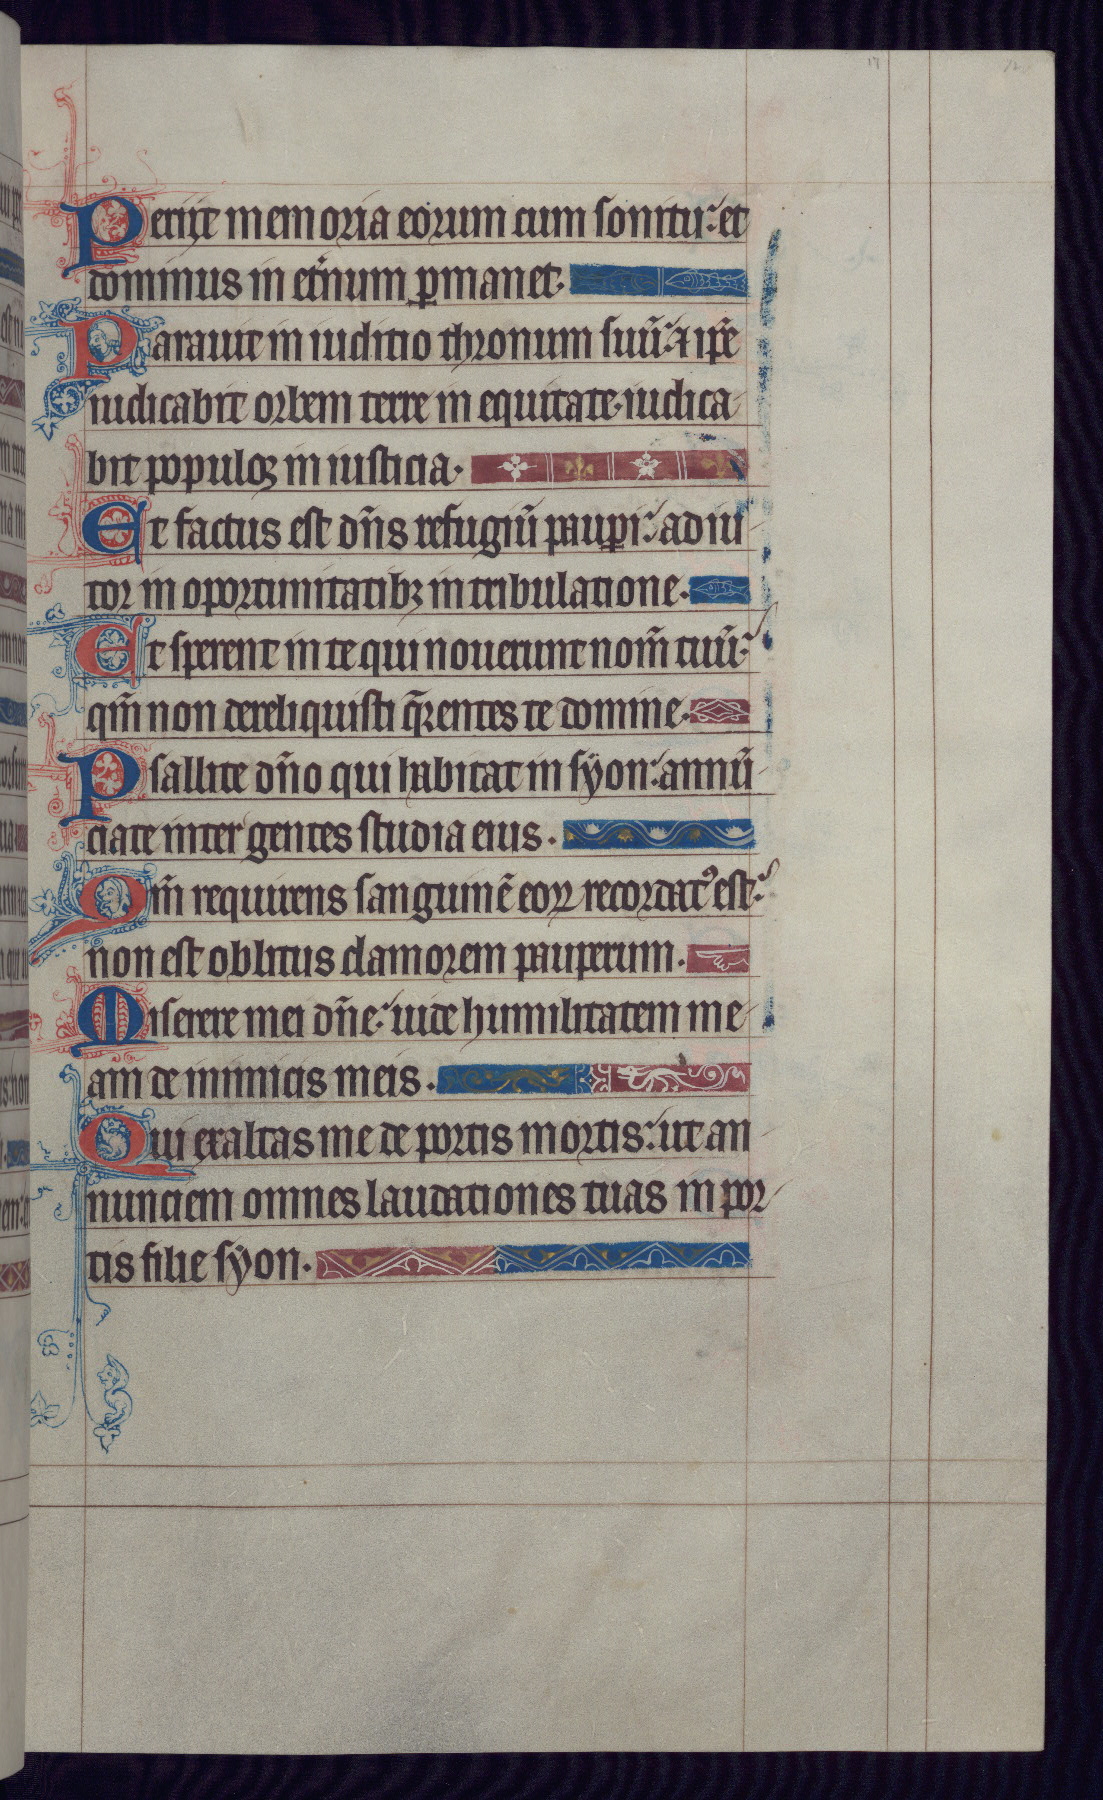 Periit memoria eorum cum sonitu: et
dominus in et̃num ꝑmanet.
Parauit in iuditio thronum suũ: ⁊ ip̃e
iudicabit orbem terre in equitate iudica
bit populoꝝ in iusticia.
Et factus est dñs refugiũ pauꝑi: ad iu
tor in oportunitatibꝫ in tribulatione.
Et sperent in te qui nouerunt nom̃ tuũ:
qm̃ non dereliquisti q̃rentes te domine.
Psallite dño qui habitat in syon: annũ
ciate inter gentes studia eius.
Qm̃ requirens sanguinẽ eoꝝ recordatꝰ est:
non est oblitus clamorem pauperum.
Miserere mei dñe: uide humilitatem me
am de inimicis meis.
Qui exaltas me de portis mortis: ut an
nunciem omnes laudationes tuas in por
tis filie syon.